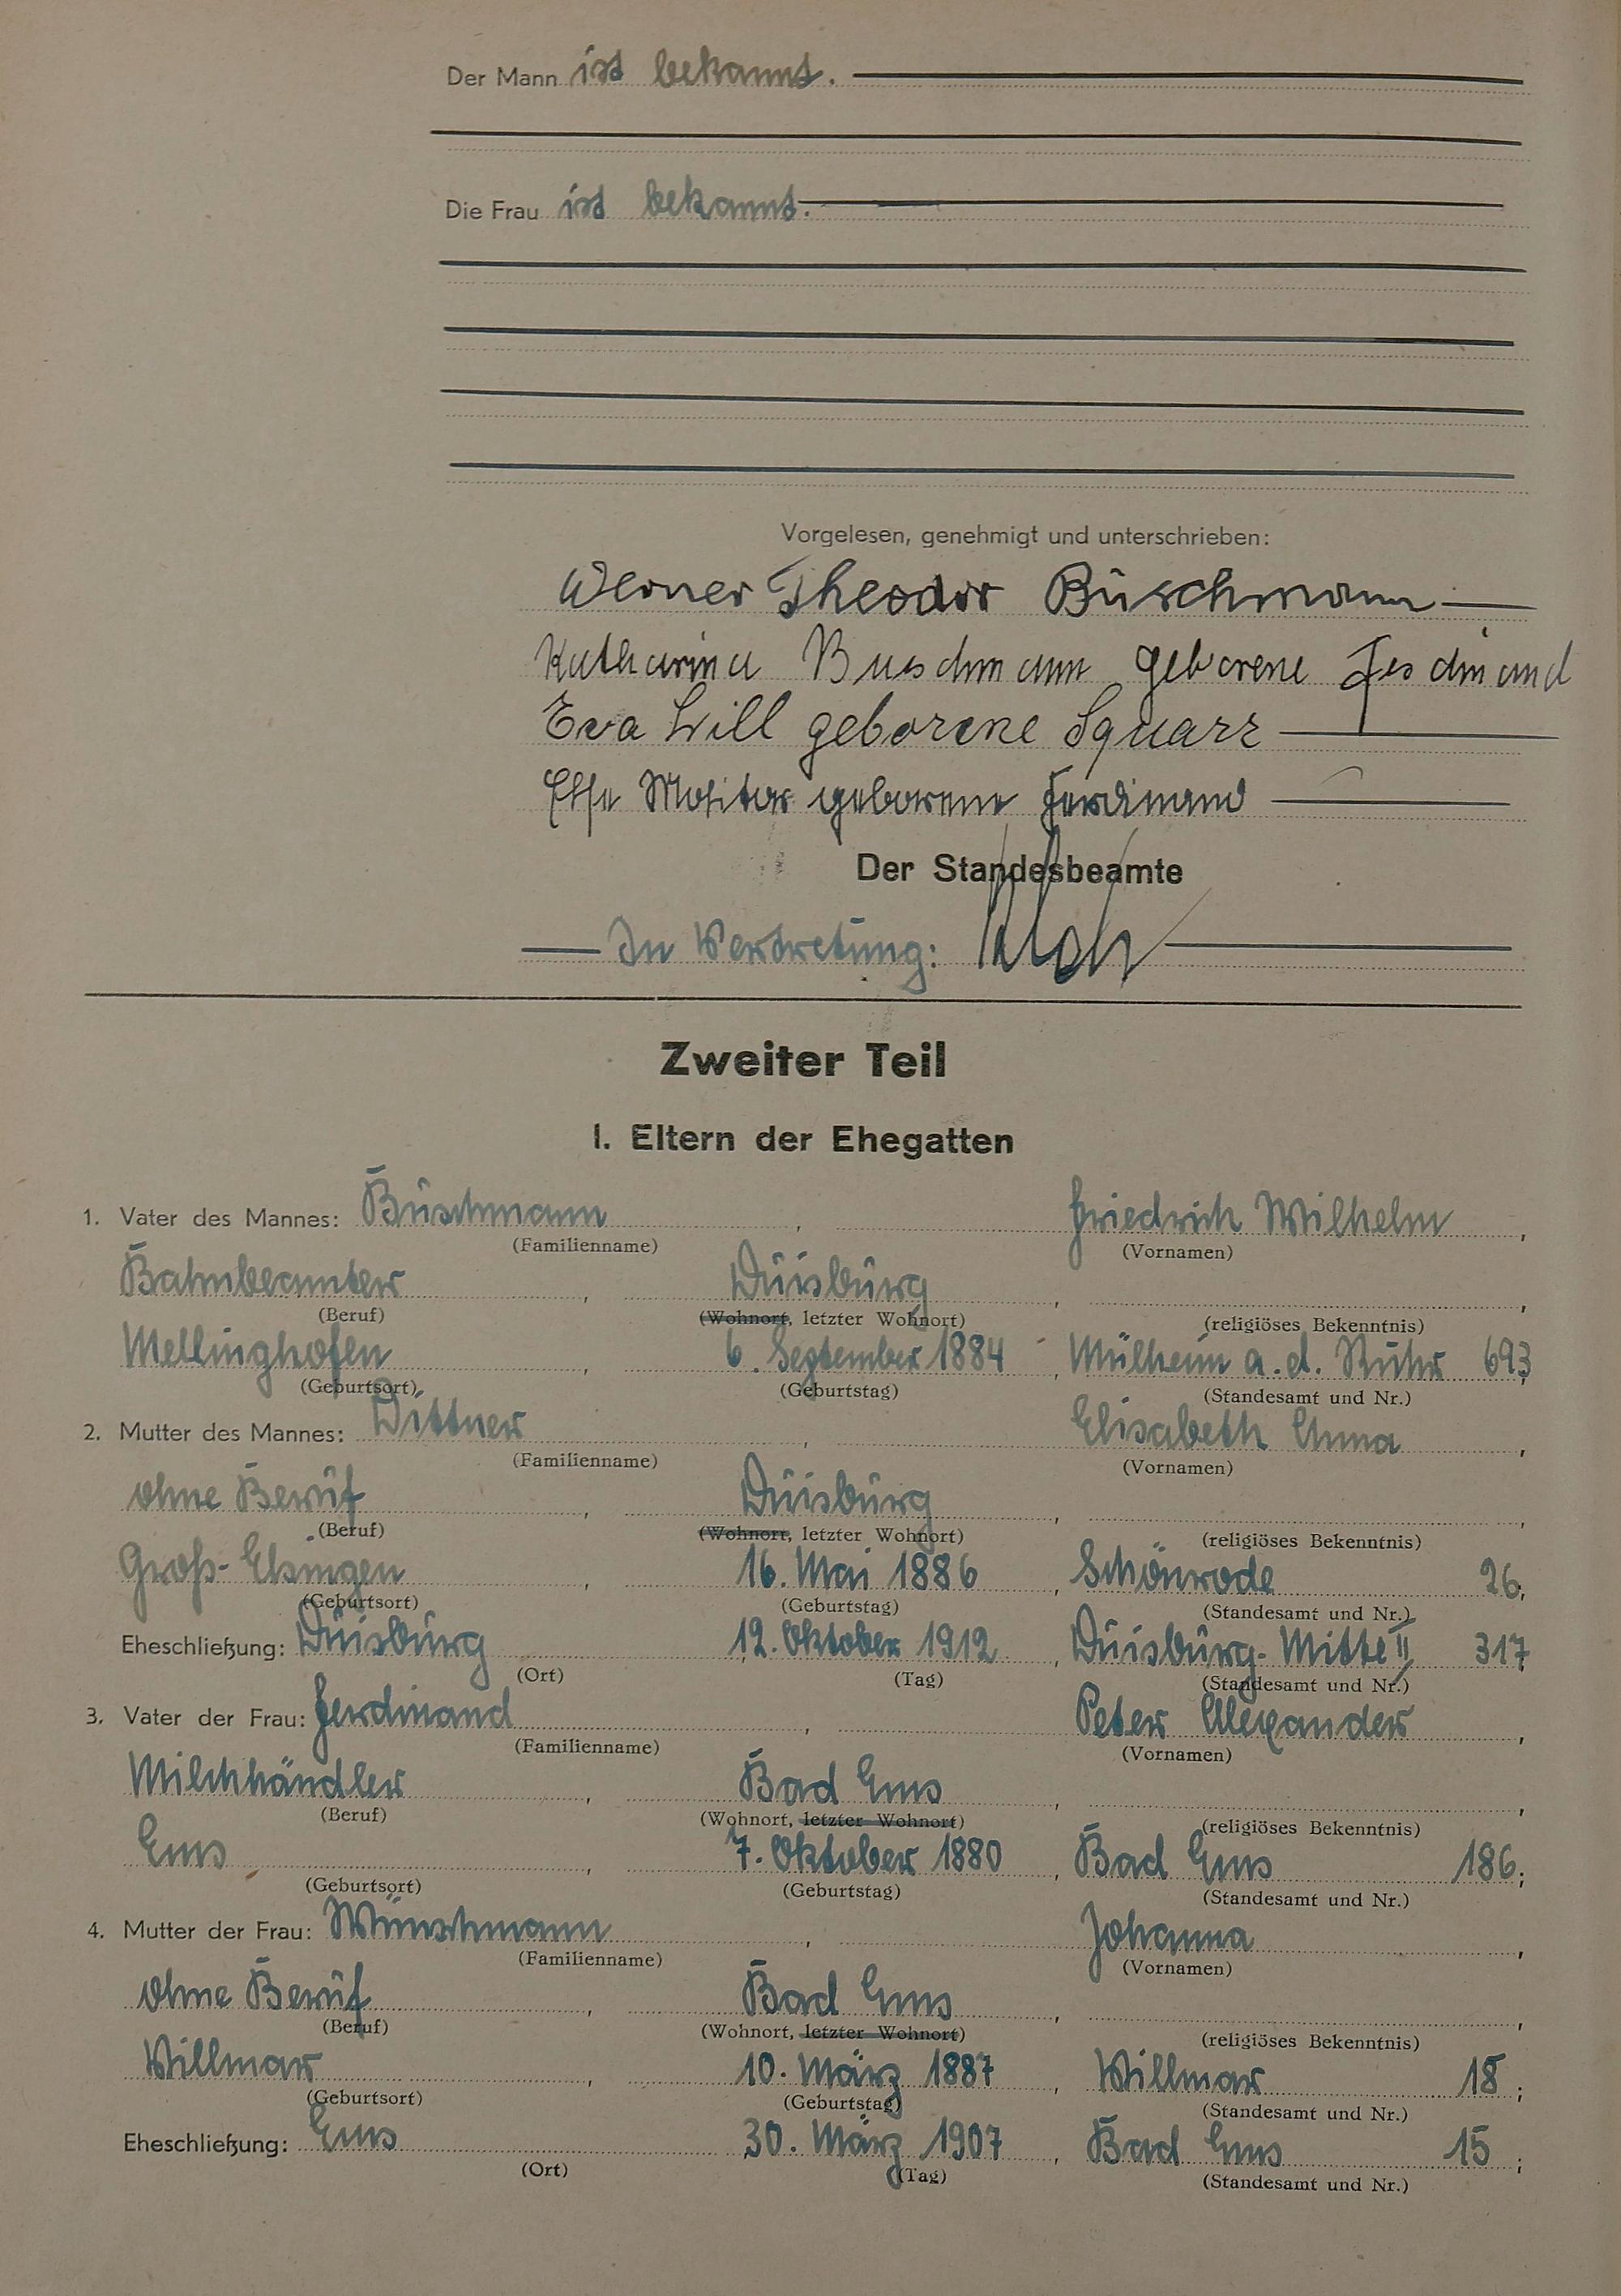 Der Mann ist bekannt.
Die Frau ist bekannt.
Vorgelesen, genehmigt und unterschrieben:
Werner Theodor Buschmann
Katharina Buschmann geborene Ferdinand
Eva Will geborene Squarr
Else Molitor geborene Ferdinand
Der Standesbeamte
In Vertretung:
Zweiter Teil
I. Eltern der Ehegatten
1. Vater des Mannes: Buschmann, Friedrich Wilhelm,
(Familienname) (Vornamen)
Bahnbeamter, Duisburg,
(Beruf) (Wohnort, letzter Wohnort) (religiöses Bekenntnis)
Mellinghofen, 6. September 1884, Mülheim a.d. Ruhr 693;
(Geburtsort) (Geburtstag) (Standesamt und Nr.)
2. Mutter des Mannes: Dittner, Elisabeth Anna,
(Familienname) (Vornamen)
ohne Beruf, Duisburg,
(Beruf) (Wohnort, letzter Wohnort) (religiöses Bekenntnis)
Groß-Elsingen, 16. Mai 1886, Schönrode 26;
(Geburtsort) (Geburtstag) (Standesamt und Nr.)
Eheschließung: Duisburg 12. Oktober 1912, Duisburg-Mitte II 317
(Ort) (Tag) (Standesamt und Nr.)
3. Vater der Frau: Ferdinand, Peter Alexander,
(Familienname) (Vornamen)
Milchhändler, Bad Ems,
(Beruf) (Wohnort, letzter Wohnort) (religiöses Bekenntnis)
Ems, 7. Oktober 1880, Bad Ems 186;
(Geburtsort) (Geburtstag) (Standesamt und Nr.)
4. Mutter der Frau: Münschmann, Johanna,
(Familienname) (Vornamen)
ohne Beruf, Bad Ems,
(Beruf) (Wohnort, letzter Wohnort) (religiöses Bekenntnis)
Villmar, 10. März 1887, Villmar 18;
(Geburtsort) (Geburtstag) (Standesamt und Nr.)
Eheschließung: Ems 30. März 1907, Bad Ems 15;
(Ort) (Tag) (Standesamt und Nr.)